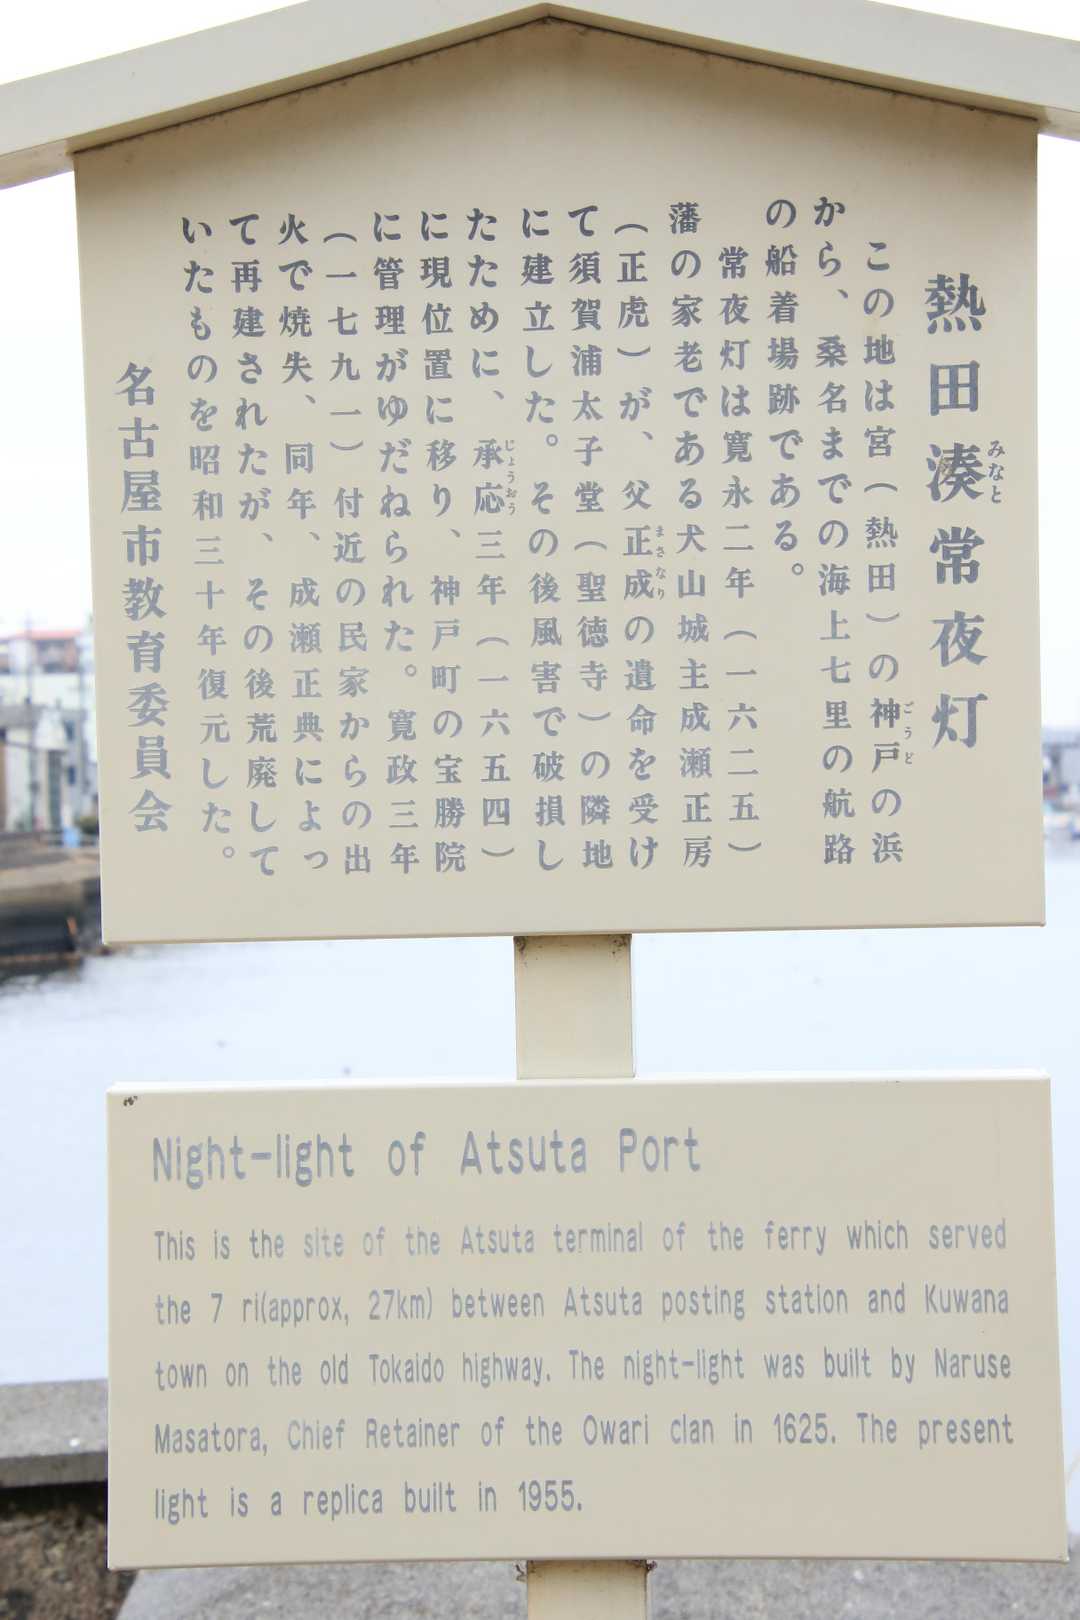 熱田湊常夜灯
みなと
この地は宮（熱田）の神戸の浜
ごうど
から、桑名までの海上七里の航路
の船着場跡である。
常夜灯は寛永二年（一六二五）
藩の家老である犬山城主成瀬正房
（正虎）が、父正成の遺命を受け
まさなり
て須賀浦太子堂（聖徳寺）の隣地
に建立した。その後風害で破損し
たために、承応三年（一六五四）
じょうおう
に現位置に移り、神戸町の宝勝院
に管理がゆだねられた。寛政三年
（一七九一）付近の民家からの出
火で焼失、同年、成瀬正典によっ
て再建されたが、その後荒廃して
いたものを昭和三十年復元した。
名古屋市教育委員会
Night-light of Atsuta Port
This is the site of the Atsuta terminal of the ferry which served
the 7 ri(approx, 27km) between Atsuta posting station and Kuwana
town on the old Tokaido highway. The night-light was built by Naruse
Masatora, Chief Retainer of the Owari clan in 1625. The present
light is a replica built in 1955.